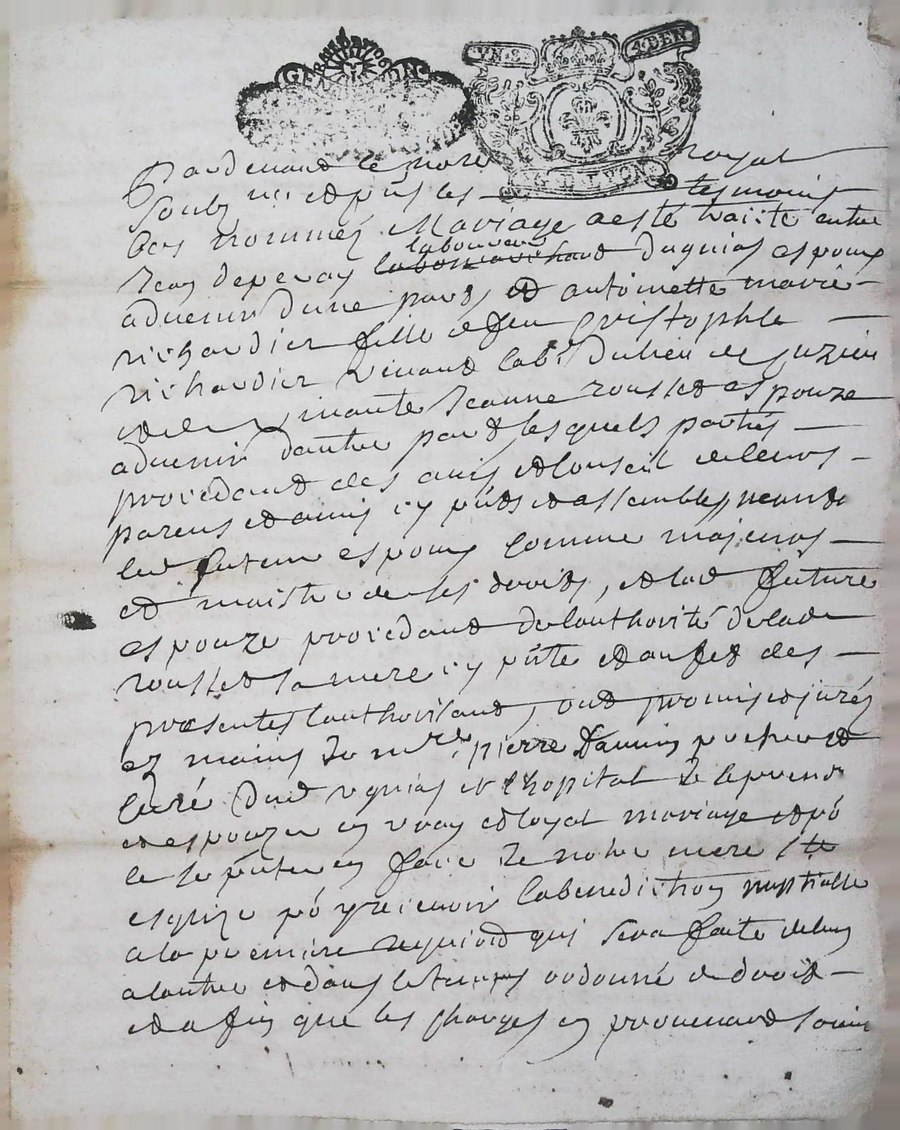 GEN
UN. S. 4. DEN
G. D. LYON
Pardevant le nore royal
soubz né et pnts les tesmoins
bas nommés Mariage a esté traitté entre
Jean deperay laboureur dugnias espoux
advenir dune part, et antoinette marie
richardier fille a feu Cristophle
richardier vivant lab. du lieu de
vivante Jeanne rousset espouze
advenir dautre part lesquels parties
procedant des avis et conseil de leurs
parens et amis icy pnts et assemblés
led futeur espoux comme majeurs
et maistre de ses droits, et lad future
espouze procedant de lauthorité de lad
rousset sa mere icy pnte et au fet des
presentes lauthorisant, ont promis et jurés
ez mains de mre pierre pretre et
curé dud ugnias et lhopital de se prendre
et espouzer en vray et loyal mariage et po
ce se pnter en face de notre mere ste
esglize po y recevoir la benediction nuptialle
a la premiere requise qui sera faite de lun
a lautre et dans le temps ordonné de droit
et afin que les charges en provenant soint